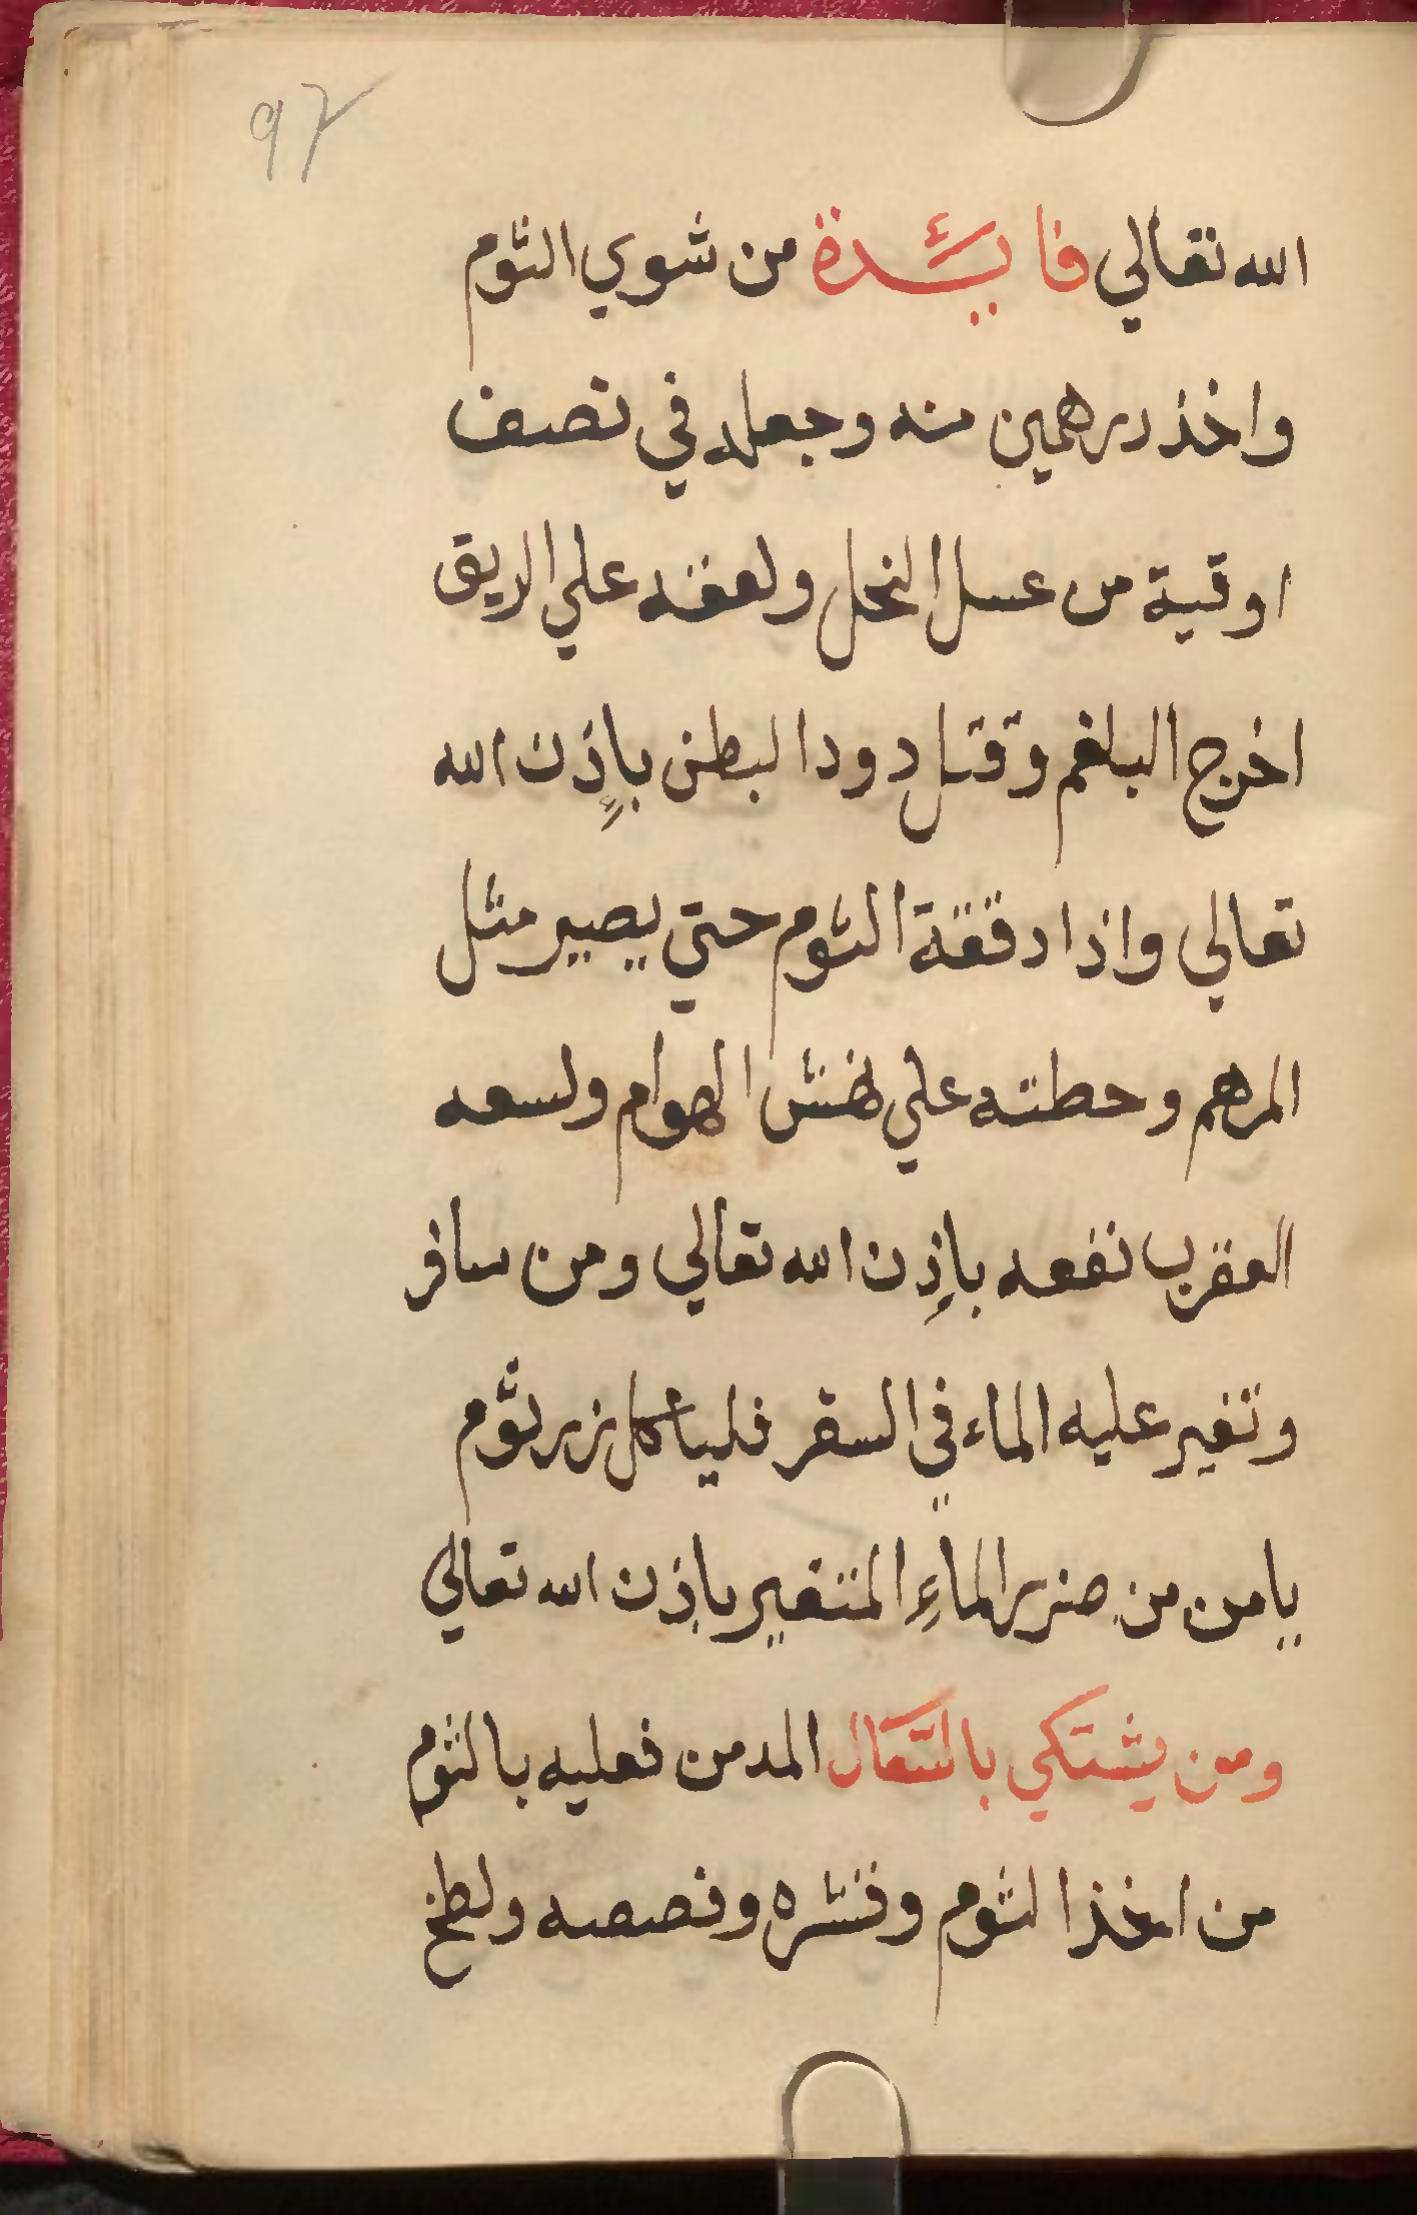 ٩٢
الله تعالي فايئدة من شوي الثوم
واخذ درهمين منه وجعله في نصف
اوقية من عسل النحل ولعقه علي الريق
اخرج البلغم وقتل دود البطن بإذن الله
تعالي واذا دققة الثوم حتي يصير مثل
المرهم وحطته علي نهش الهوام ولسعه
العقرب نفعه بإذن الله تعالي ومن سافر
وتغير عليه الماء في السفر فلياكل زر ثوم
يامن من ضرر الماءِ المتغير باذن الله تعالي
ومن يشتكي بالسّعال المدمن فعليه بالثوم
من اخذ الثوم وقشره وفصصه ولطخ